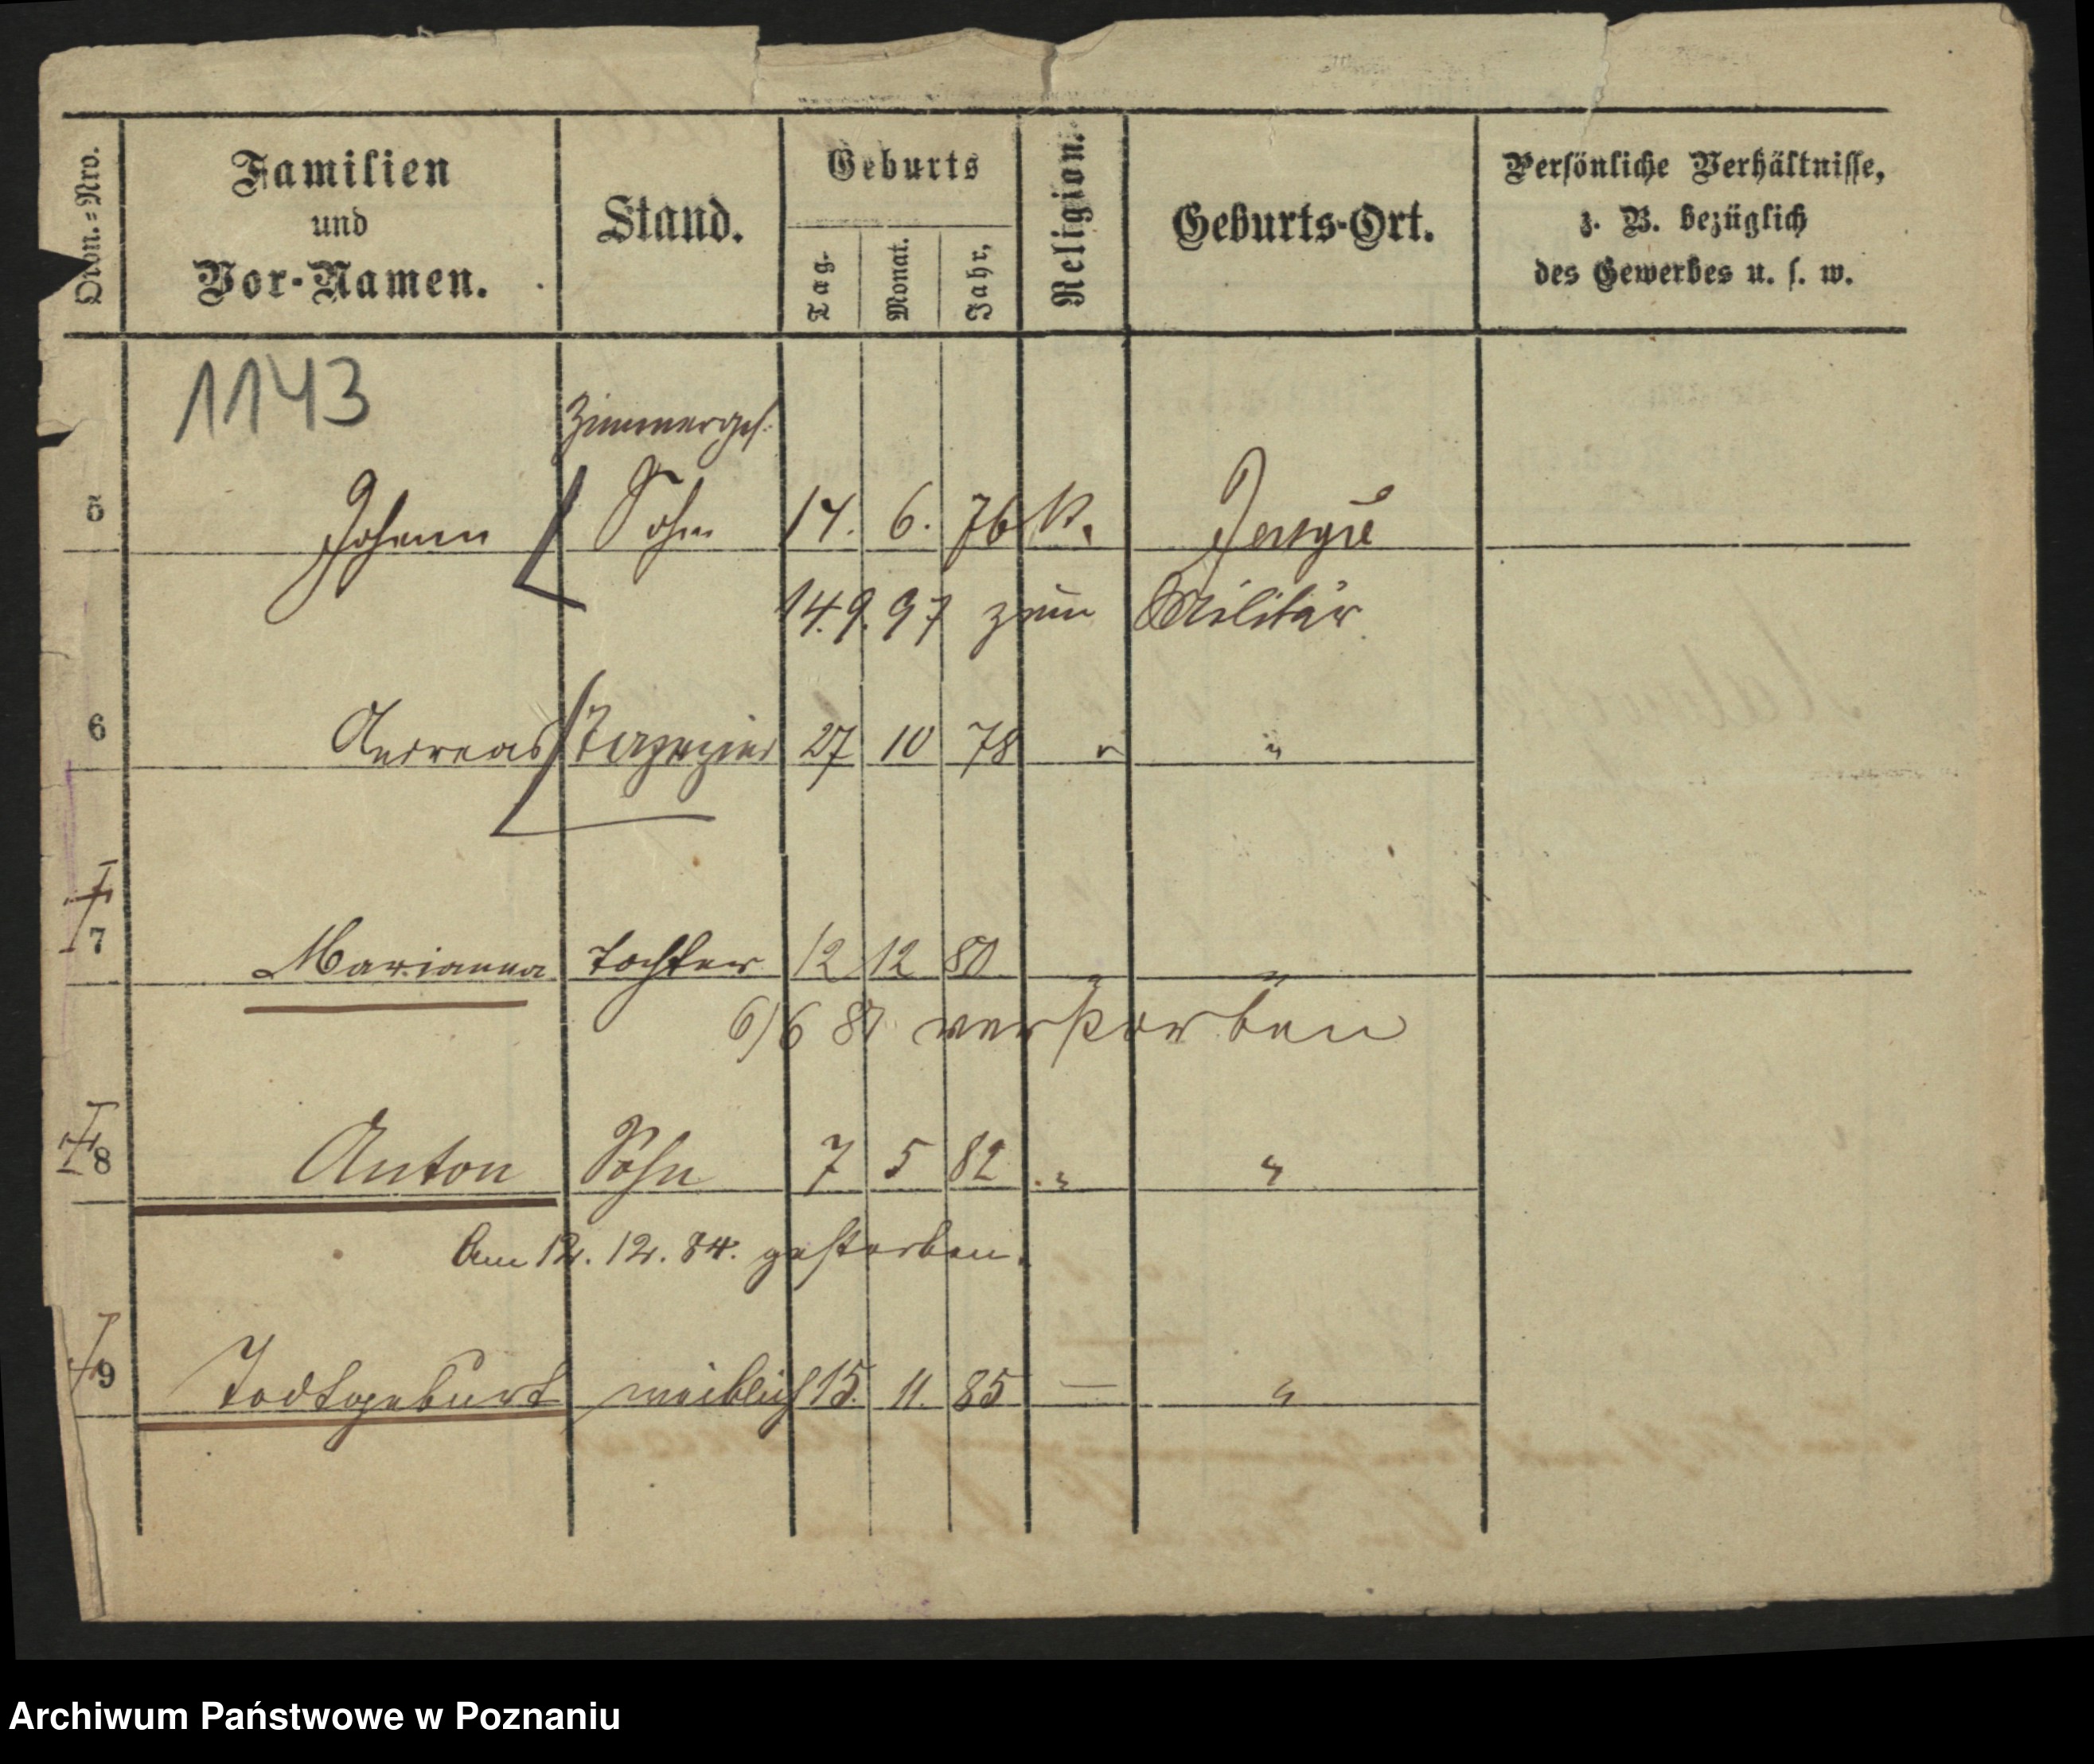 Ordn.=Nro.
Familien
und
Vor-Namen.
Stand.
Geburts
Tag.
Monat.
Jahr,
Religion.
Geburts-Ort.
Persönliche Verhältnisse,
z. B. bezüglich
des Gewerbes u. s. w.
1143
Zimmerges.
5 Johann Sohn 14. 6. 76 K.
14. 9. 97 zum Militär
6 Andreas Tapezier 27 10 78 " "
7 Marianna Tochter 12 12 80 " "
6/6 81 verstorben
8 Anton Sohn 7 5 82 " "
Am 12. 12. 84. gestorben.
9 Todtgeburt weiblich 15. 11. 85 — "
Archiwum Państwowe w Poznaniu